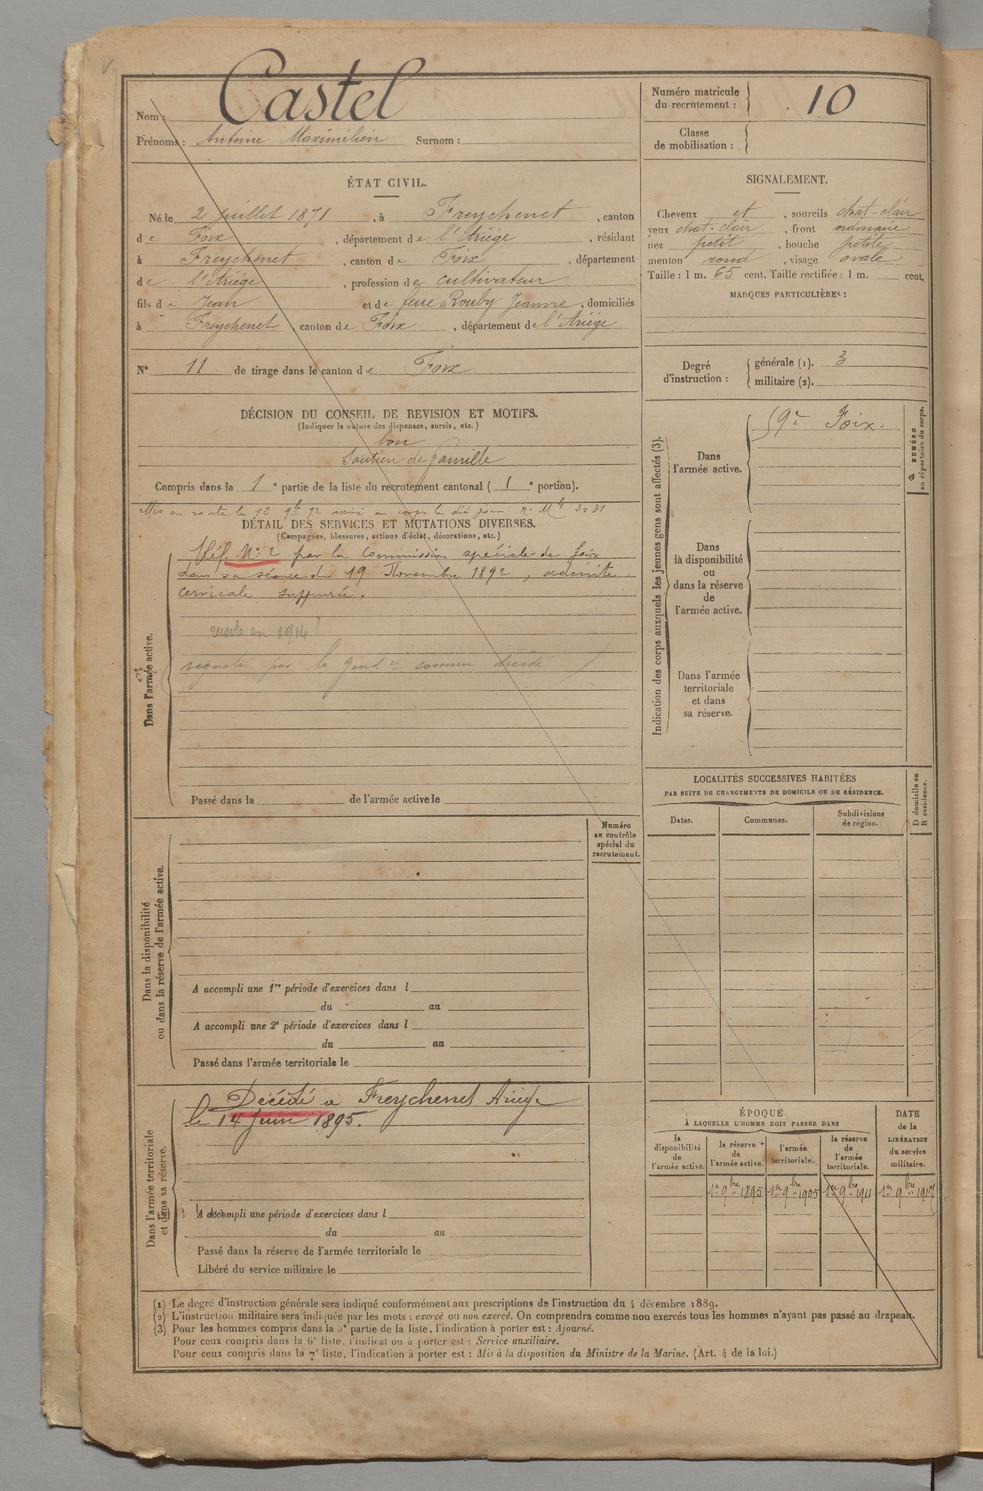 Nom : Castel
Prénoms : Antoine Maximilien Surnom :
Numéro matricule du recrutement : 10
Classe de mobilisation :
ÉTAT CIVIL.
Né le 2 Juillet 1871, à Freychenet, canton
de Foix, département de l'Ariége, résidant
à Freychenet, canton de Foix, département
de l'Ariége, profession de cultivateur
fils de Jean et de feue Rouby Jeanne, domiciliés
à Freychenet canton de Foix, département de l'Ariége
N° 11 de tirage dans le canton de Foix
SIGNALEMENT.
Cheveux et, sourcils chat-clair
yeux chat-clair, front ordinaire
nez petit, bouche petite
menton rond, visage ovale
Taille : 1 m. 65 cent. Taille rectifiée : 1 m. cent.
MARQUES PARTICULIÈRES :
Degré d'instruction :
générale (1). 3
militaire (2).
DÉCISION DU CONSEIL DE REVISION ET MOTIFS.
(Indiquer la nature des dispenses, sursis, etc.)
bon
Soutien de famille
Compris dans la 1e partie de la liste du recrutement cantonal (1e portion).
Mis en route le 12 9bre 92 arrivé au corps le dit jour n. Mle 3081
DÉTAIL DES SERVICES ET MUTATIONS DIVERSES.
(Campagnes, blessures, actions d'éclat, décorations, etc.)
Dans l'armée active.
Réf. N: 2 par la Commission spéciale de Foix
dans sa séance du 19 Novembre 1892, adénite
cervicale suppurée.
en 1914
signalé par la comme décédé
Passé dans la de l'armée active le
Indication des corps auxquels les jeunes gens sont affectés (3).
NUMÉRO au répertoire du corps.
Dans l'armée active.
59e Foix.
Dans la disponibilité ou dans la réserve de l'armée active.
Dans l'armée territoriale et dans sa réserve.
LOCALITÉS SUCCESSIVES HABITÉES
PAR SUITE DE CHANGEMENTS DE DOMICILE OU DE RÉSIDENCE.
Dates. Communes. Subdivisions de région.
D domicile ou R résidence.
Numéro au contrôle spécial du recrutement.
Dans la disponibilité ou dans la réserve de l'armée active.
A accompli une 1re période d'exercices dans l
du au
A accompli une 2e période d'exercices dans l
du au
Passé dans l'armée territoriale le
Dans l'armée territoriale et dans sa réserve.
Décédé a Freychenet Ariége
le 14 Juin 1895.
A accompli une période d'exercices dans l
du au
Passé dans la réserve de l'armée territoriale le
Libéré du service militaire le
ÉPOQUE
À LAQUELLE L'HOMME DOIT PASSER DANS
la disponibilité de l'armée active.
la réserve de l'armée active.
l'armée territoriale.
la réserve de l'armée territoriale.
DATE de la LIBÉRATION du service militaire.
1er 9bre 1895 1er 9bre 1905 1er 9bre 1911 1er 9bre 1917
(1) Le degré d'instruction générale sera indiqué conformément aux prescriptions de l'instruction du 4 décembre 1889.
(2) L'instruction militaire sera indiquée par les mots : exercé ou non exercé. On comprendra comme non exercés tous les hommes n'ayant pas passé au drapeau.
(3) Pour les hommes compris dans la 5e partie de la liste, l'indication à porter est : Ajourné.
Pour ceux compris dans la 6e liste, l'indication à porter est : Service auxiliaire.
Pour ceux compris dans la 7e liste, l'indication à porter est : Mis à la disposition du Ministre de la Marine. (Art. 4 de la loi.)